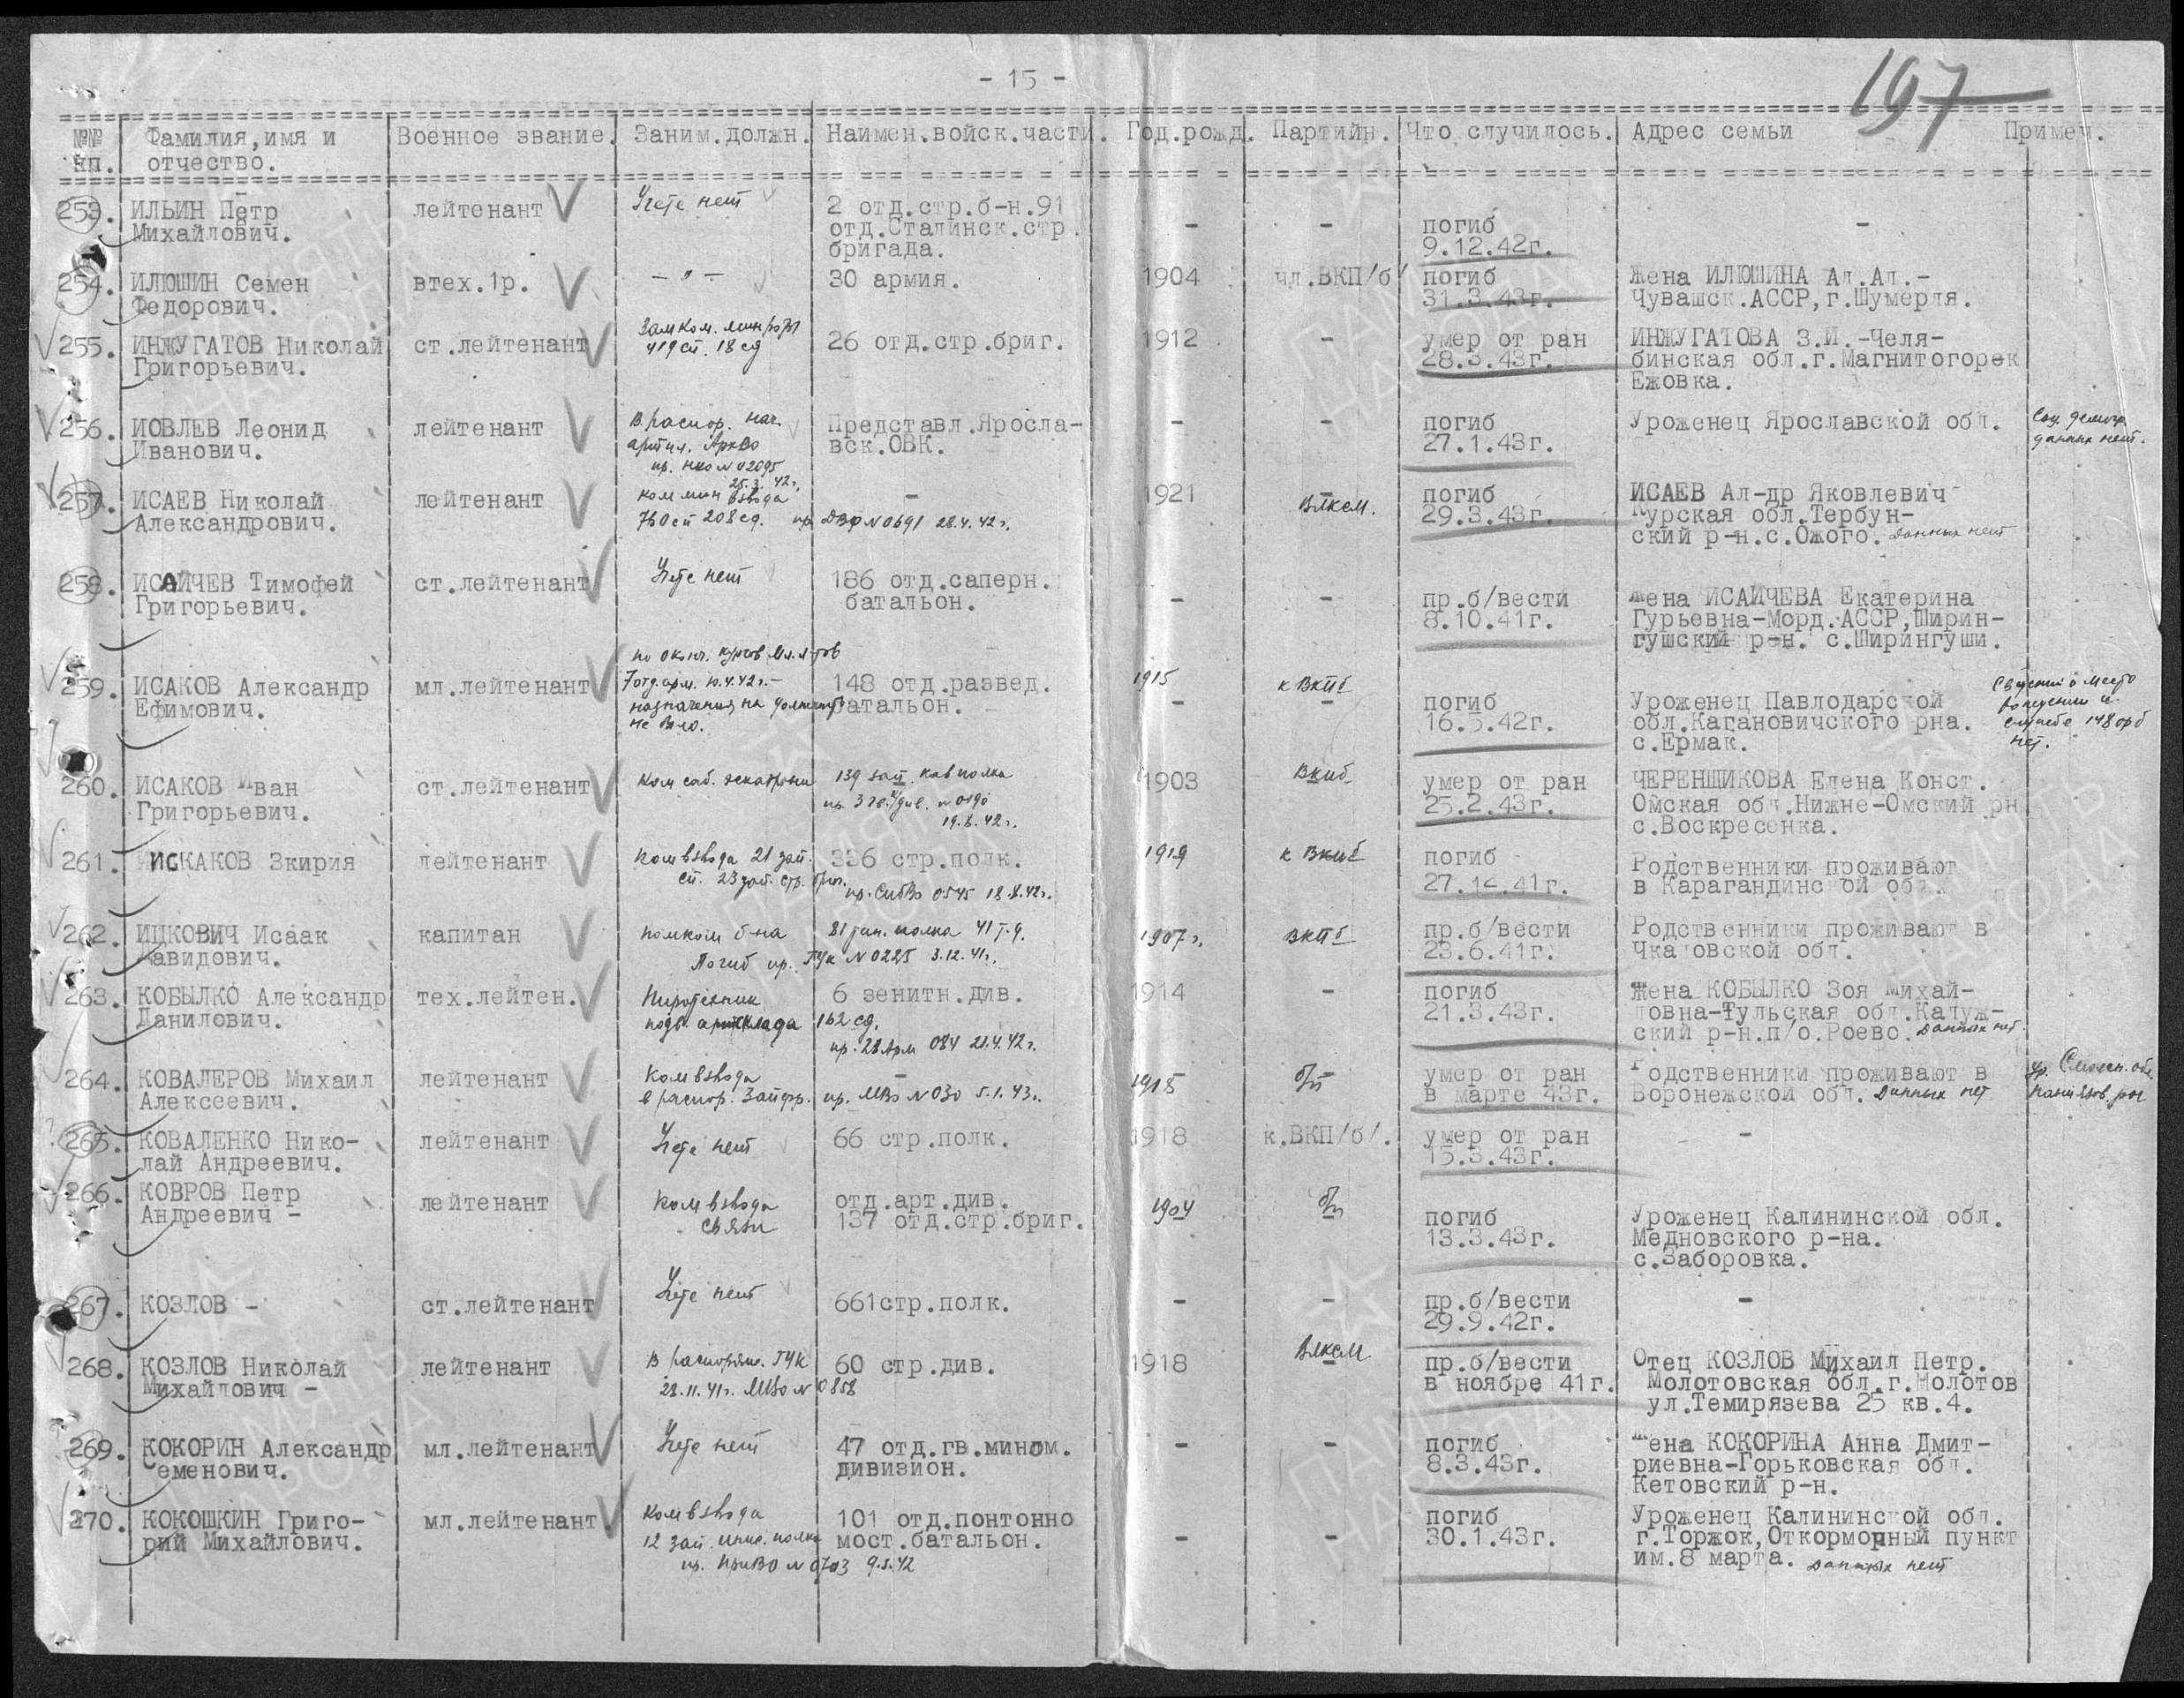 - 15 -
197
№№ пп. Фамилия,имя и отчество. Военное звание. Заним.должн. Наимен.войск.части. Год.рожд. Партийн. Что случилось. Адрес семьи Примеч.
253. ИЛЬИН Петр лейтенант Учете нет 2 отд.стр.б-н.91
Михайлович. отд.Сталинск.стр. - - погиб -
бригада. 9.12.42г.
254. ИЛЮШИН Семен втех.1р. - " - 30 армия. 1904 чл.ВКП/б/ погиб Жена ИЛЮШИНА Ал.Ал.-
Федорович. 31.3.43г. Чувашск.АССР,г.Шумерля.
255. ИНЖУГАТОВ Николай ст.лейтенант Зам ком. мин роты 26 отд.стр.бриг. 1912 - умер от ран ИНЖУГАТОВА З.И.-Челя-
Григорьевич. 419 сп. 18 сд 28.3.43г. бинская обл.г.Магнитогорск
Ежовка.
256. ИОВЛЕВ Леонид лейтенант В распор. нач. Представл.Яросла- - - погиб Уроженец Ярославской обл.
Иванович. артил. АрхВо вск.ОВК. 27.1.43г. данных нет.
пр. НКО №02095
25.3.42г.
257. ИСАЕВ Николай лейтенант ком мин взвода - 1921 - погиб ИСАЕВ Ал-др Яковлевич
Александрович. 760 сп 208 сд. пр ДВФ №0691 28.4.42г. Влксм. 29.3.43г. Курская обл.Тербун-
ский р-н.с.Ожого. Данных нет
258. ИСАЙЧЕВ Тимофей ст.лейтенант Учете нет 186 отд.саперн.
Григорьевич. батальон. - - пр.б/вести Жена ИСАИЧЕВА Екатерина
8.10.41г. Гурьевна-Морд.АССР,Ширин-
гушский р-н. с.Ширингуши.
по оконч. курсов мл. л-тов
259. ИСАКОВ Александр мл.лейтенант 7 отд.арм. 10.4.42г.- 148 отд.развед. 1915 к ВКПб
Ефимович. назначения на должность батальон. - - погиб Уроженец Павлодарской
не было. 16.5.42г. обл.Кагановичского рна.
с.Ермак.
службе 148 орб
нет.
260. ИСАКОВ Иван ст.лейтенант Ком саб. эскадрона 139 зап кав полка 1903 Вкпб умер от ран ЧЕРЕНЩИКОВА Елена Конст.
Григорьевич. 25.2.43г. Омская обл.Нижне-Омский рн
19.8.42г. с.Воскресенка.
261. ИСКАКОВ Зкирия лейтенант Ком взвода 21 зап. 336 стр.полк. 1919 к Вкпб погиб Родственники проживают
сп. 23 зап. стр. бриг. 27.12.41г. в Карагандинской обл.
пр. СибВо 0545 18.8.42г.
262. ИЦКОВИЧ Исаак капитан помком б-на 81 тан. полка 41 т.д. 1907г. ВКПб пр.б/вести Родственники проживают в
Давидович. Погиб пр. ГУК №0225 3.12.41г. 23.6.41г. Чкаловской обл.
263. КОБЫЛКО Александр тех.лейтен. Пиротехник 6 зенитн.див. 1914 - погиб Жена КОБЫЛКО Зоя Михай-
Данилович. подв. артсклада 162 сд. 21.3.43г. ловна-Тульская обл.Калуж-
пр. 28 Арм 084 21.4.42г. ский р-н.п/о.Роево. Данных нет
264. КОВАЛЕРОВ Михаил лейтенант Ком взвода - 1915 б/п умер от ран Родственники проживают в ур. Смолен. обл.
Алексеевич. в распор. Зап фр. пр. МВо №030 5.1.43г. в марте 43г. Воронежской обл. Данных нет
265. КОВАЛЕНКО Нико- лейтенант Учете нет 66 стр.полк. 1918 к.ВКП/б/. умер от ран -
лай Андреевич. 15.3.43г.
266. КОВРОВ Петр лейтенант Ком взвода отд.арт.див. 1904 б/п
Андреевич - связи 137 отд.стр.бриг. погиб Уроженец Калининской обл.
13.3.43г. Медновского р-на.
с.Заборовка.
267. КОЗЛОВ - ст.лейтенант Учете нет 661стр.полк. - - пр.б/вести -
29.9.42г.
268. КОЗЛОВ Николай лейтенант В распоряж. ГУК 60 стр.див. 1918 Влксм - пр.б/вести Отец КОЗЛОВ Михаил Петр.
Михайлович - 28.11.41г. МВо №0858 в ноябре 41г. Молотовская обл.г.Молотов
ул.Темирязева 25 кв.4.
269. КОКОРИН Александр мл.лейтенант Учете нет 47 отд.гв.мином. - - погиб Жена КОКОРИНА Анна Дмит-
Семенович. дивизион. 8.3.43г. риевна-Горьковская обл.
Кетовский р-н.
270. КОКОШКИН Григо- мл.лейтенант Ком взвода 101 отд.понтонно погиб Уроженец Калининской обл.
рий Михайлович. 12 зап. инж. полка мост.батальон. - - 30.1.43г. г.Торжок,Откормочный пункт
пр. ПриВО №0703 9.5.42 им.8 марта. Данных нет